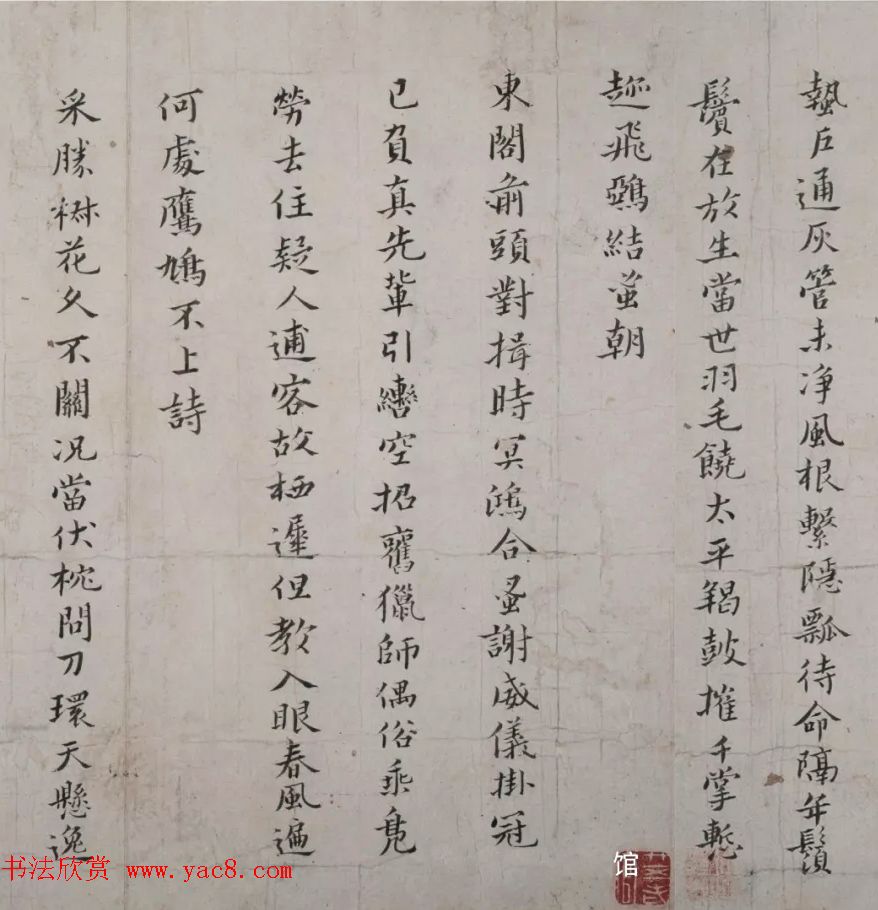 蟄戶通灰管未净風根繫隱瓢待命隔年鬚
鬢在放生當世羽毛饒太平羯鼓摧千掌慙
趂飛鵶結蚤朝
東閣前頭對揖時冥鴻合蚤謝威儀掛冠
已負真先軰引轡空招舊獵師偶俗乘鳬
勞去住疑人逋客故栖遲但教入眼春風遍
何處鷹鳩不上詩
采勝樹花久不關况當伏枕問刀環天懸逸
书法欣赏 www.yac8.com
馆